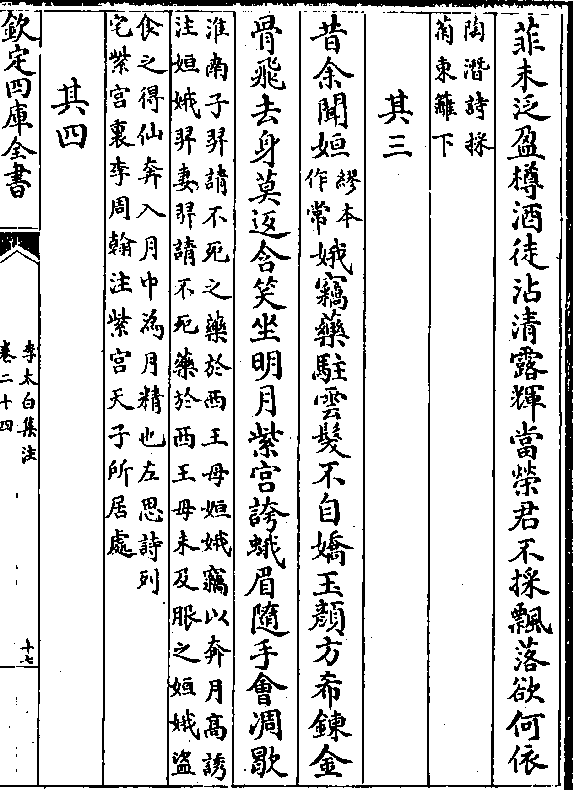 菲未泛盈樽酒徒沾清露輝當榮君不採飄落欲何依
陶潛詩採
菊東籬下
其三
昔余聞姮
繆本
作常
娥竊藥駐雲髮不自嬌玉顏方希鍊金
骨飛去身莫返含笑坐明月紫宫誇蛾眉隨手會凋歇
淮南子羿請不死之藥於西王母姮娥竊以奔月高誘
注姮娥羿妻羿請不死藥於西王母未及服之姮娥盜
食之得仙奔入月中為月精也左思詩列
宅紫宫裏李周翰注紫宫天子所居處
其四
欽定四庫全書
李太白集注
卷二十四
十七